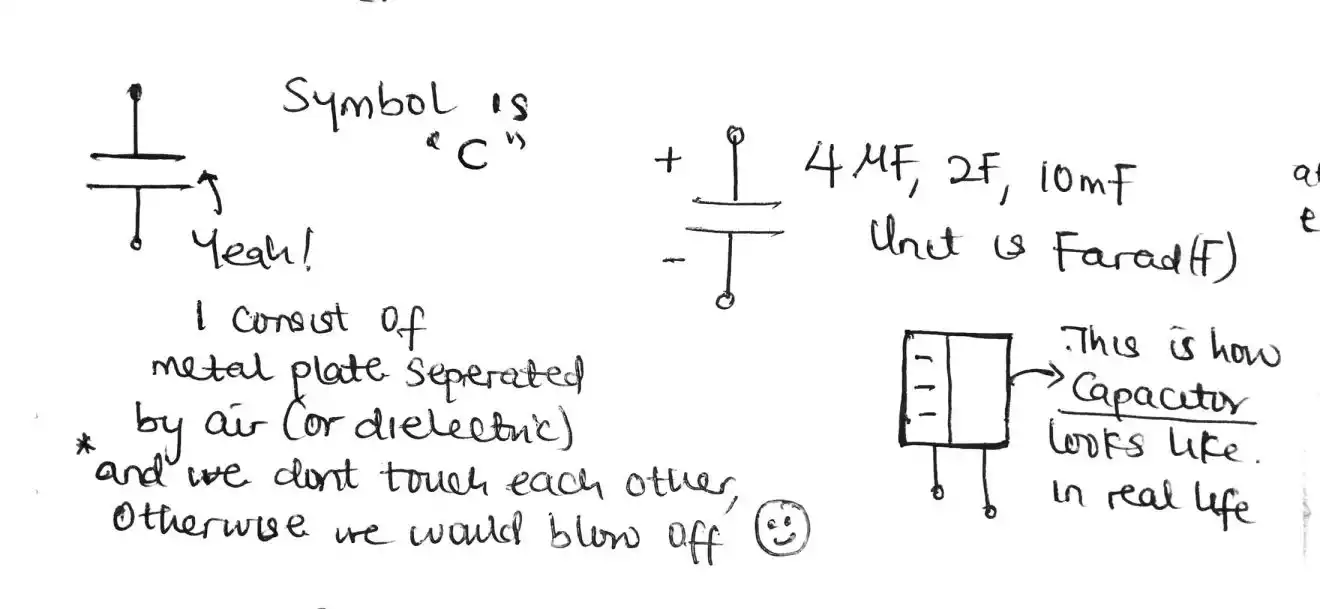 Symbol is
"C"
Yeah!
I consist of
metal plate seperated
by air (or dielectric)
*and we dont touch each other,
Otherwise we would blow off
+
-
4 μF, 2F, 10mF
Unit is Farad(F)
.This is how
Capacitor
looks like.
in real life